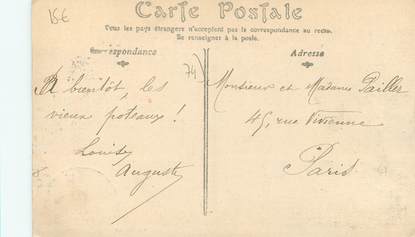 15€
Carte Postale
Tous les pays étrangers n'acceptent pas la correspondance au recto.
Se renseigner à la poste.
Correspondance
Adresse
74
A bientôt, les
vieux poteaux !
Louise
Auguste
Monsieur et Madame Pailler
45, rue Vivienne
Paris